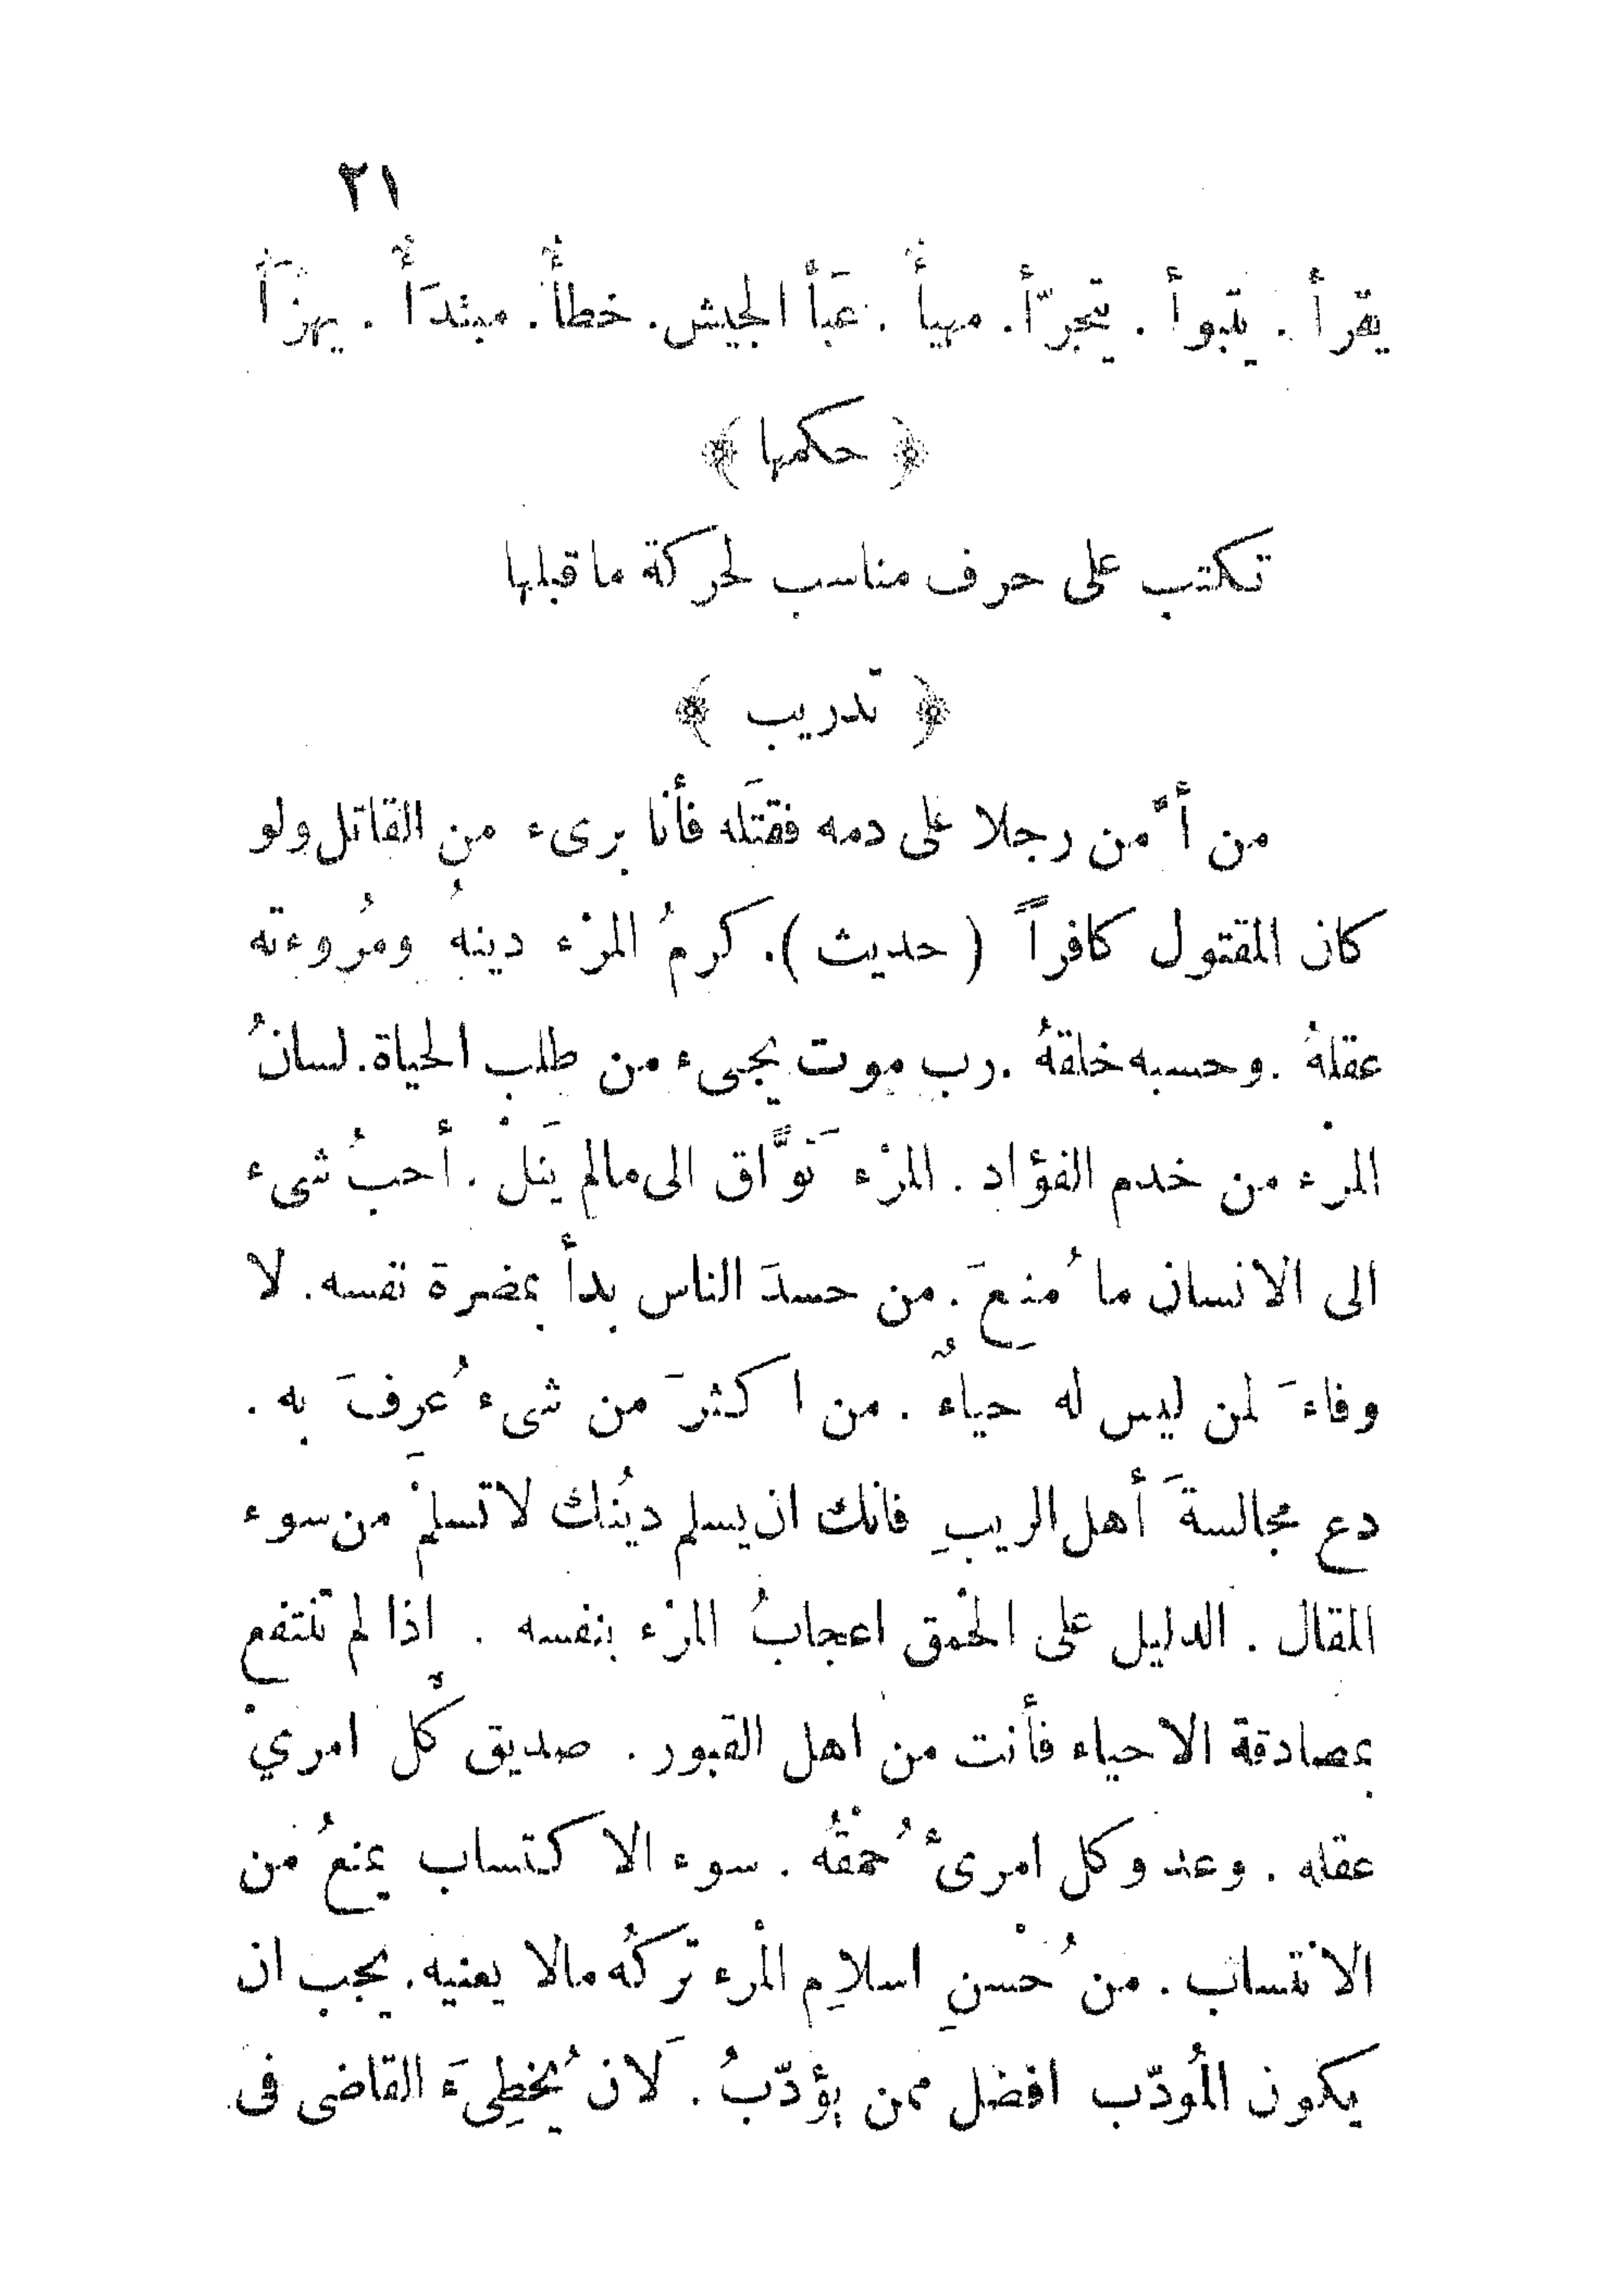 ٢١
يقرأ . يتبوأ . يتجرّأ. مهيأٌ . عَبأ الجيش. خطأٌ. مبتدَأٌ . يهزَأ
﴿ حكمها ﴾
تكتب على حرف مناسب لحركة ماقبلها
﴿ تدريب ﴾
من أمَّن رجلا على دمه فقتَله فأنا برىء من القاتل ولو
كان المقتول كافراً ( حديث ). كرمُ المرْء دينهُ ومُروءته
عقلهُ . وحسبه خلقهُ . رب موت يجىء من طلب الحياة. لسانُ
المرْء من خدم الفؤاد . المرْء تَوَّاق الى مالم يَنلْ . أحبُ شىء
الى الانسان ما مُنِعَ . من حسدَ الناس بدأ بمضرة نفسه. لا
وفاءَ لمن ليس له حياءٌ . من اكثرَ من شىء عُرِفَ به .
دع مجالسةَ أهل الريبِ فانك ان يسلم دينُك لا تسلمْ من سوء
المقال . الدليل على الحمْق اعجابُ المرْء بنفسه . اذا لم تنتفع
بمصادقة الاحياء فأنت من اهل القبور . صديق كل امريْ
عقله . وعدو كل امرئ حُمْقُه . سوء الاكتساب يمنعُ من
الانتساب . من حُسْنِ اسلامِ المْرء تركُه مالا يعنيه. يجب ان
يكون المُودّب افضل ممن يؤدّبُ . لَان يُخطِىءَ القاضى فى